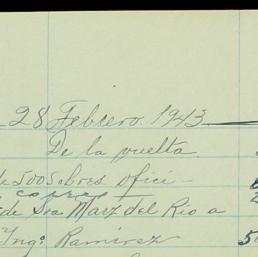 28 Febrero 1943
De la vuelta.
de 500 Sobres ofici-
de Sra Marz del Rio a
Ingº Ramirez